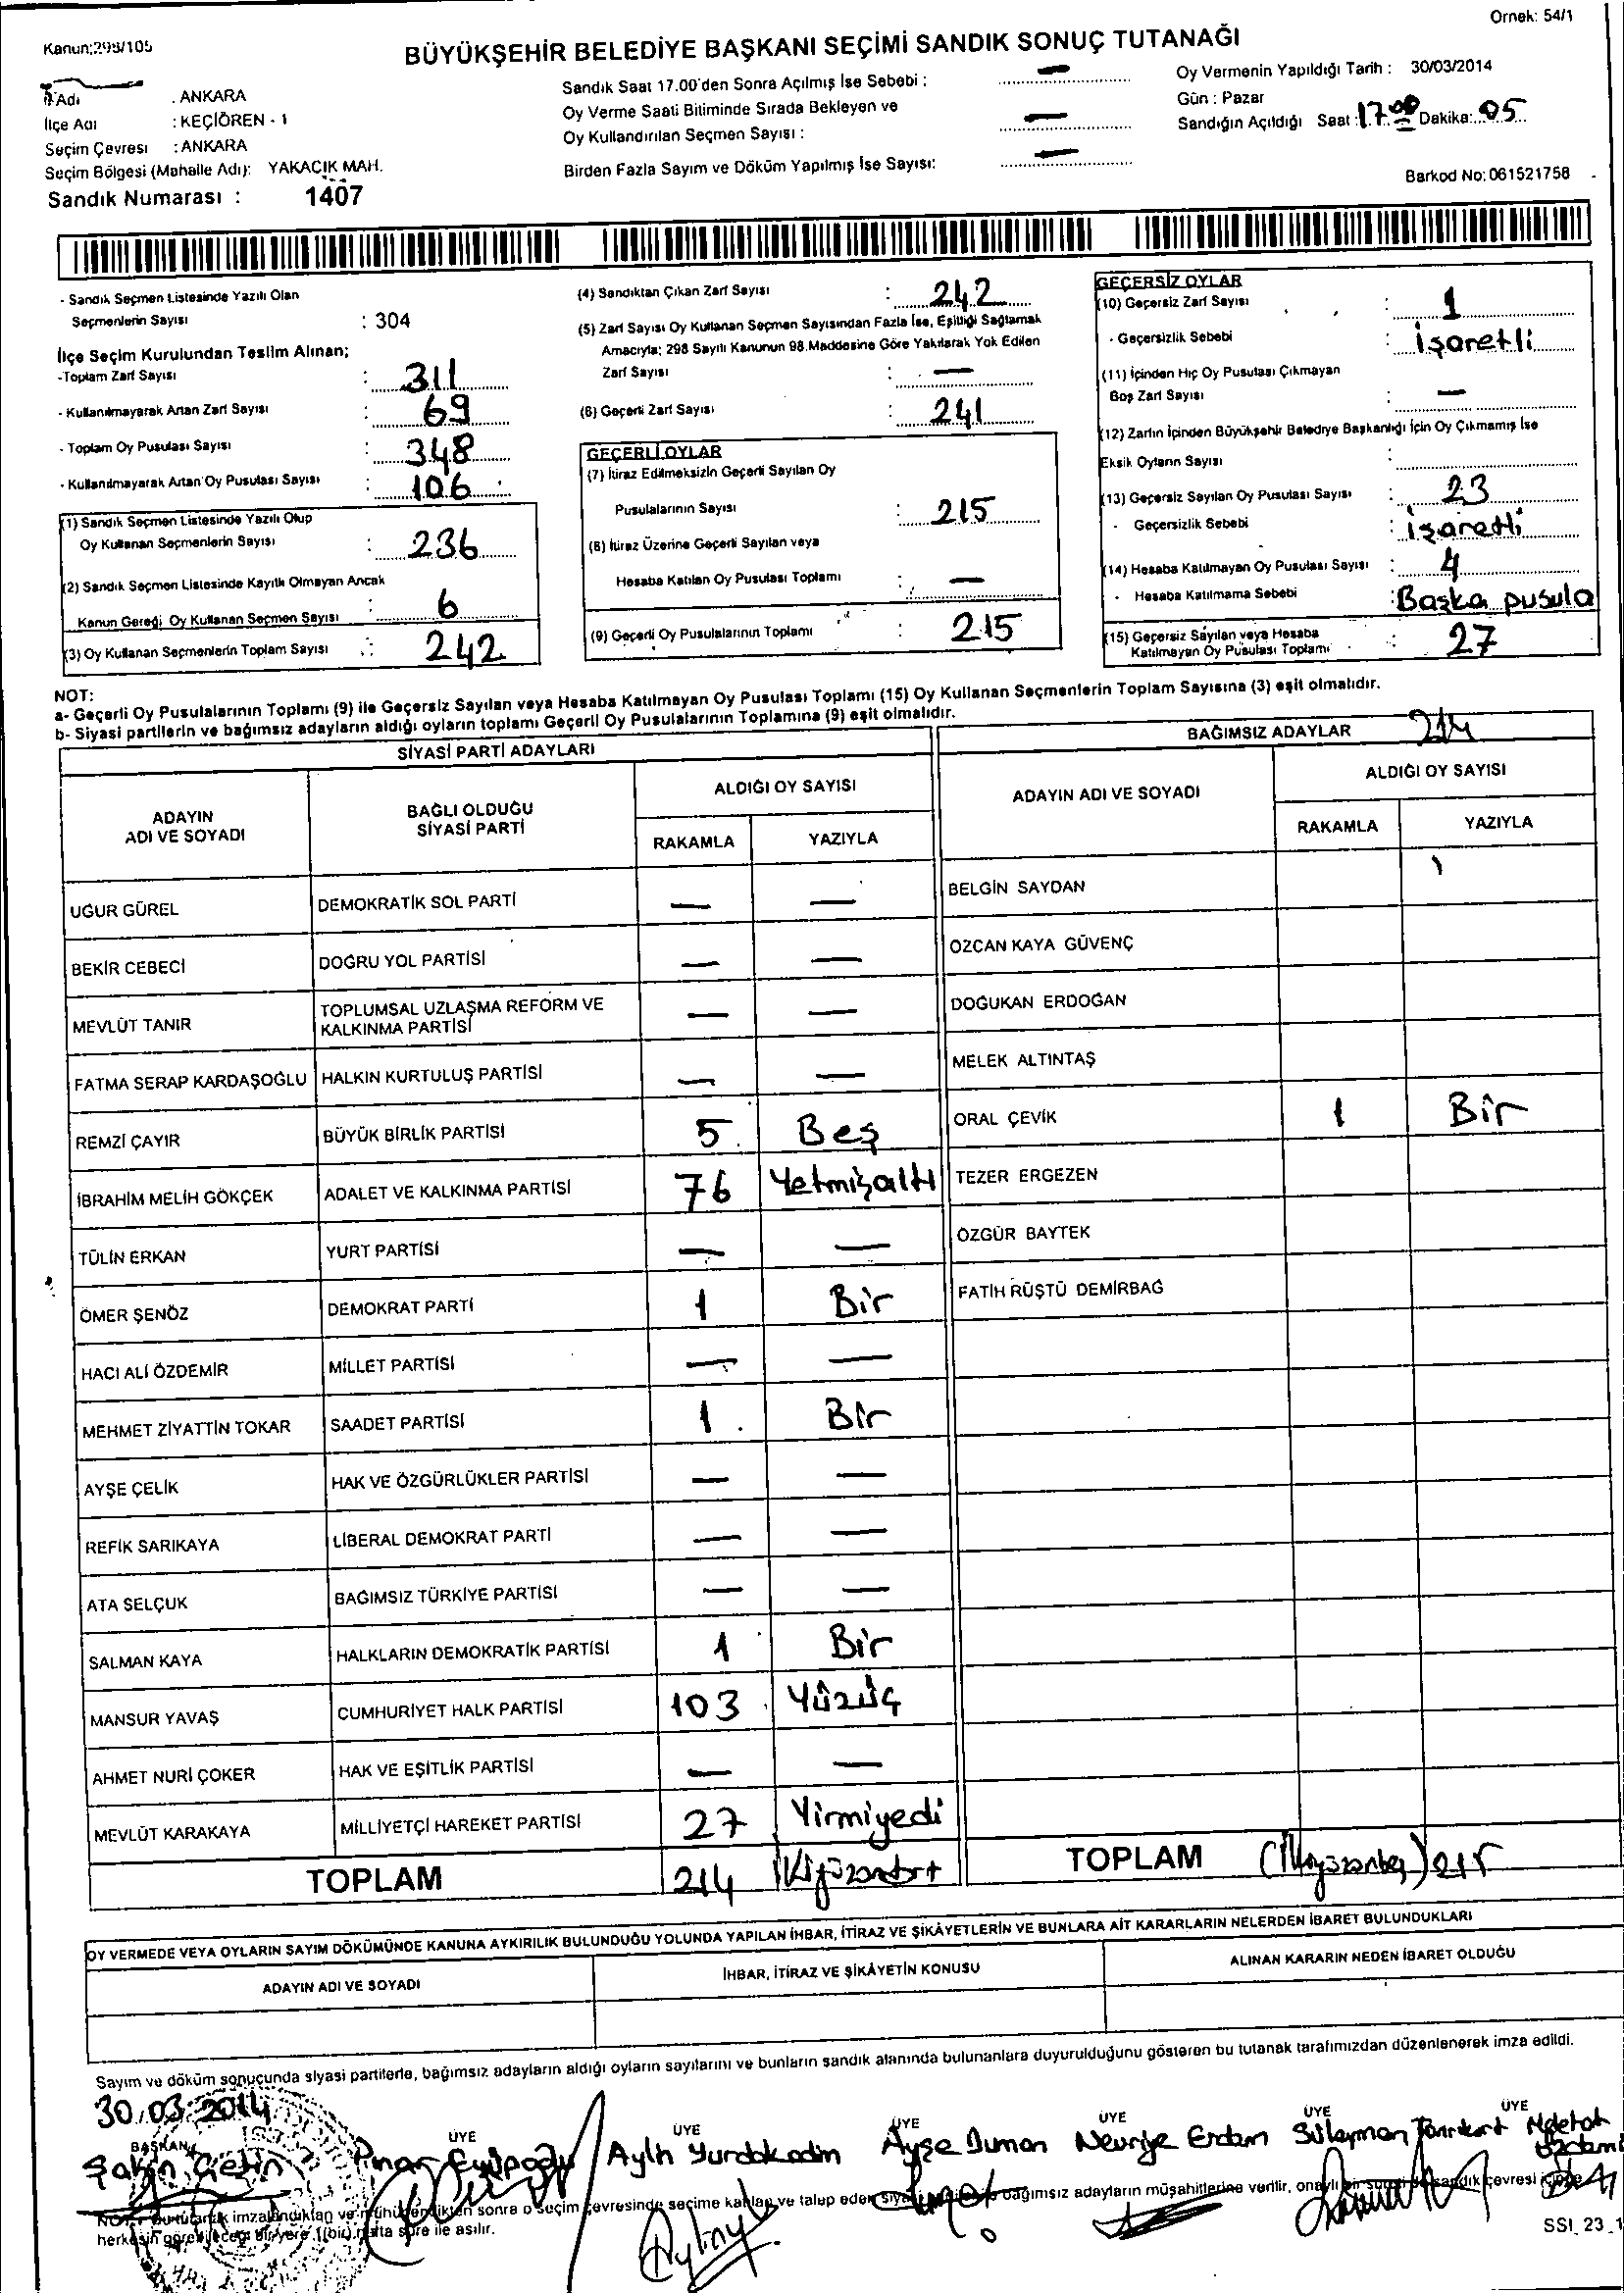 Örnek: 54/1
Kanun:298/105
BÜYÜKŞEHİR BELEDİYE BAŞKANI SEÇİMİ SANDIK SONUÇ TUTANAĞI
İl Adı : ANKARA
İlçe Adı : KEÇİÖREN - 1
Seçim Çevresi : ANKARA
Seçim Bölgesi (Mahalle Adı): YAKACIK MAH.
Sandık Numarası : 1407
Sandık Saat 17.00'den Sonra Açılmış İse Sebebi : —
Oy Verme Saati Bitiminde Sırada Bekleyen ve
Oy Kullandırılan Seçmen Sayısı : —
Birden Fazla Sayım ve Döküm Yapılmış İse Sayısı: —
Oy Vermenin Yapıldığı Tarih : 30/03/2014
Gün : Pazar
Sandığın Açıldığı Saat : 17.00 Dakika: 05
Barkod No: 061521758
- Sandık Seçmen Listesinde Yazılı Olan
Seçmenlerin Sayısı : 304
İlçe Seçim Kurulundan Teslim Alınan;
-Toplam Zarf Sayısı : 311
- Kullanılmayarak Artan Zarf Sayısı : 69
- Toplam Oy Pusulası Sayısı : 348
- Kullanılmayarak Artan Oy Pusulası Sayısı : 106
(1) Sandık Seçmen Listesinde Yazılı Olup
Oy Kullanan Seçmenlerin Sayısı : 236
(2) Sandık Seçmen Listesinde Kayıtlı Olmayan Ancak
Kanun Gereği Oy Kullanan Seçmen Sayısı : 6
(3) Oy Kullanan Seçmenlerin Toplam Sayısı : 242
(4) Sandıktan Çıkan Zarf Sayısı : 242
(5) Zarf Sayısı Oy Kullanan Seçmen Sayısından Fazla İse, Eşitliği Sağlamak
Amacıyla; 298 Sayılı Kanunun 98.Maddesine Göre Yakılarak Yok Edilen
Zarf Sayısı : —
(6) Geçerli Zarf Sayısı : 241
GEÇERLİ OYLAR
(7) İtiraz Edilmeksizin Geçerli Sayılan Oy
Pusulalarının Sayısı : 215
(8) İtiraz Üzerine Geçerli Sayılan veya
Hesaba Katılan Oy Pusulası Toplamı : —
(9) Geçerli Oy Pusulalarının Toplamı : 215
GEÇERSİZ OYLAR
(10) Geçersiz Zarf Sayısı : 1
- Geçersizlik Sebebi : işaretli
(11) İçinden Hiç Oy Pusulası Çıkmayan
Boş Zarf Sayısı : —
(12) Zarfın İçinden Büyükşehir Belediye Başkanlığı İçin Oy Çıkmamış İse
Eksik Oyların Sayısı :
(13) Geçersiz Sayılan Oy Pusulası Sayısı : 23
- Geçersizlik Sebebi : işaretli
(14) Hesaba Katılmayan Oy Pusulası Sayısı : 4
- Hesaba Katılmama Sebebi : Başka pusula
(15) Geçersiz Sayılan veya Hesaba
Katılmayan Oy Pusulası Toplamı : 27
NOT:
a- Geçerli Oy Pusulalarının Toplamı (9) ile Geçersiz Sayılan veya Hesaba Katılmayan Oy Pusulası Toplamı (15) Oy Kullanan Seçmenlerin Toplam Sayısına (3) eşit olmalıdır.
b- Siyasi partilerin ve bağımsız adayların aldığı oyların toplamı Geçerli Oy Pusulalarının Toplamına (9) eşit olmalıdır.
SİYASİ PARTİ ADAYLARI
ADAYIN ADI VE SOYADI BAĞLI OLDUĞU SİYASİ PARTİ ALDIĞI OY SAYISI
RAKAMLA YAZIYLA
UĞUR GÜREL DEMOKRATİK SOL PARTİ — —
BEKİR CEBECİ DOĞRU YOL PARTİSİ — —
MEVLÜT TANIR TOPLUMSAL UZLAŞMA REFORM VE KALKINMA PARTİSİ — —
FATMA SERAP KARDAŞOĞLU HALKIN KURTULUŞ PARTİSİ — —
REMZİ ÇAYIR BÜYÜK BİRLİK PARTİSİ 5 Beş
İBRAHİM MELİH GÖKÇEK ADALET VE KALKINMA PARTİSİ 76 Yetmişaltı
TÜLİN ERKAN YURT PARTİSİ — —
ÖMER ŞENÖZ DEMOKRAT PARTİ 1 Bir
HACI ALİ ÖZDEMİR MİLLET PARTİSİ — —
MEHMET ZİYATTİN TOKAR SAADET PARTİSİ 1 Bir
AYŞE ÇELİK HAK VE ÖZGÜRLÜKLER PARTİSİ — —
REFİK SARIKAYA LİBERAL DEMOKRAT PARTİ — —
ATA SELÇUK BAĞIMSIZ TÜRKİYE PARTİSİ — —
SALMAN KAYA HALKLARIN DEMOKRATİK PARTİSİ 1 Bir
MANSUR YAVAŞ CUMHURİYET HALK PARTİSİ 103 Yüzüç
AHMET NURİ ÇOKER HAK VE EŞİTLİK PARTİSİ — —
MEVLÜT KARAKAYA MİLLİYETÇİ HAREKET PARTİSİ 27 Yirmiyedi
TOPLAM 214 İkiyüzondört
BAĞIMSIZ ADAYLAR 214
ADAYIN ADI VE SOYADI ALDIĞI OY SAYISI
RAKAMLA YAZIYLA
BELGİN SAYDAN
ÖZCAN KAYA GÜVENÇ
DOĞUKAN ERDOĞAN
MELEK ALTINTAŞ
ORAL ÇEVİK 1 Bir
TEZER ERGEZEN
ÖZGÜR BAYTEK
FATİH RÜŞTÜ DEMİRBAĞ
TOPLAM (İkiyüzonbeş) 215
OY VERMEDE VEYA OYLARIN SAYIM DÖKÜMÜNDE KANUNA AYKIRILIK BULUNDUĞU YOLUNDA YAPILAN İHBAR, İTİRAZ VE ŞİKÂYETLERİN VE BUNLARA AİT KARARLARIN NELERDEN İBARET BULUNDUKLARI
ADAYIN ADI VE SOYADI İHBAR, İTİRAZ VE ŞİKÂYETİN KONUSU ALINAN KARARIN NEDEN İBARET OLDUĞU
Sayım ve döküm sonucunda siyasi partilerle, bağımsız adayların aldığı oyların sayılarını ve bunların sandık alanında bulunanlara duyurulduğunu gösteren bu tutanak tarafımızdan düzenlenerek imza edildi.
30.03.2014
BAŞKAN ÜYE ÜYE ÜYE ÜYE ÜYE ÜYE
Şakin Çetin Pınar Aylin Yurdakadim Ayşe Duman Nevriye Erdem Süleyman
NOT: Bu tutanak imzalandıktan ve mühürlendikten sonra o seçim çevresinde seçime katılan ve talep eden bağımsız adayların müşahitlerine verilir, onaylı bir sureti de sandık çevresi içinde
herkesin görebileceği bir yere 1(bir) hafta süre ile asılır.
SSI_23_1